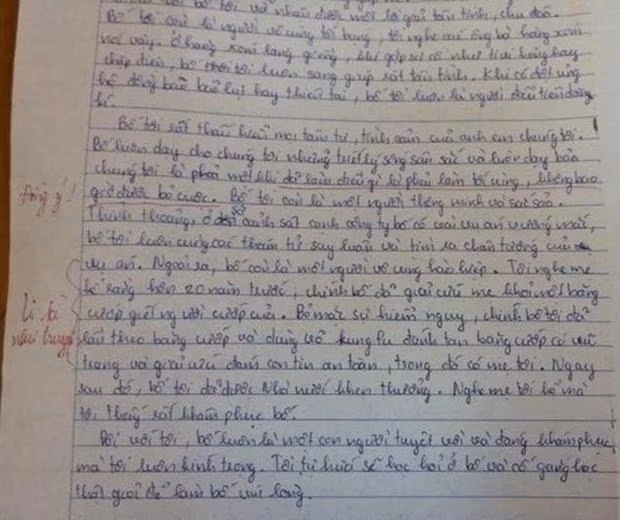 bố tôi và nhận được một lời giải tận tình, chu đáo.
Bố tôi còn là người vô cùng tốt bụng, tôi nghe các ông bà hàng xóm
nói vậy. Ở hàng xóm láng giềng, khi gặp sự cố như tivi hỏng hay
chập điện, bố tôi luôn sang giúp rất tận tình. Khi có đợt ủng
hộ đồng bào bão lụt hay thiên tai, bố tôi luôn là người đầu tiên đăng
kí.
Bố tôi rất thấu hiểu mọi tâm tư, tình cảm của anh em chúng tôi.
Bố luôn dạy cho chúng tôi những triết lý sống sâu sắc và luôn dạy bảo
chúng tôi là phải một khi đã làm điều gì là phải làm tới cùng, không bao
giờ được bỏ cuộc. Bố tôi còn là một người thông minh và sắc sảo.
Đồng ý!
Thỉnh thoảng, ở cảnh sát cạnh công ty bố có vài vụ án vướng mắc,
bố tôi luôn cùng các thám tử suy luận và tìm ra chân tướng của
vụ án. Ngoài ra, bố còn là một người vô cùng hào hiệp. Tôi nghe mẹ
kể rằng hơn 20 năm trước, chính bố đã giải cứu mẹ khỏi một băng
cướp giết người cướp của. Bỏ mặc sự hiểm nguy, chính bố tôi đã
Li kì
như truyện
lẩu theo băng cướp và dùng võ kungfu đánh tan băng cướp có vũ
trang và giải cứu đám con tin an toàn, trong đó có mẹ tôi. Ngay
sau đó, bố tôi đã được Nhà nước khen thưởng. Nghe mẹ tôi kể mà
tôi thấy rất khâm phục bố.
Đối với tôi, bố luôn là một con người tuyệt vời và đáng khâm phục
mà tôi luôn kính trọng. Tôi tự hứa sẽ học hỏi ở bố và cố gắng học
thật giỏi để làm bố vui lòng.